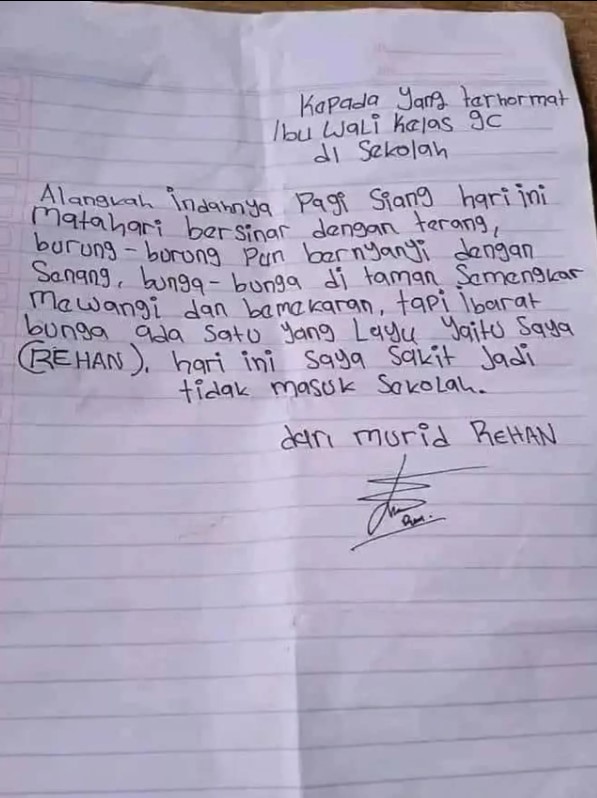 Kepada yang terhormat
Ibu Wali kelas 9c
di Sekolah
Alangkah indahnya Pagi Siang hari ini
Matahari bersinar dengan terang,
burung-burung Pun bernyanyi dengan
Senang, bunga-bunga di taman Semengkar
Mewangi dan bemekaran, tapi ibarat
bunga ada satu yang Layu yaitu Saya
(REHAN), hari ini saya sakit Jadi
tidak masuk Sekolah.
dari murid REHAN